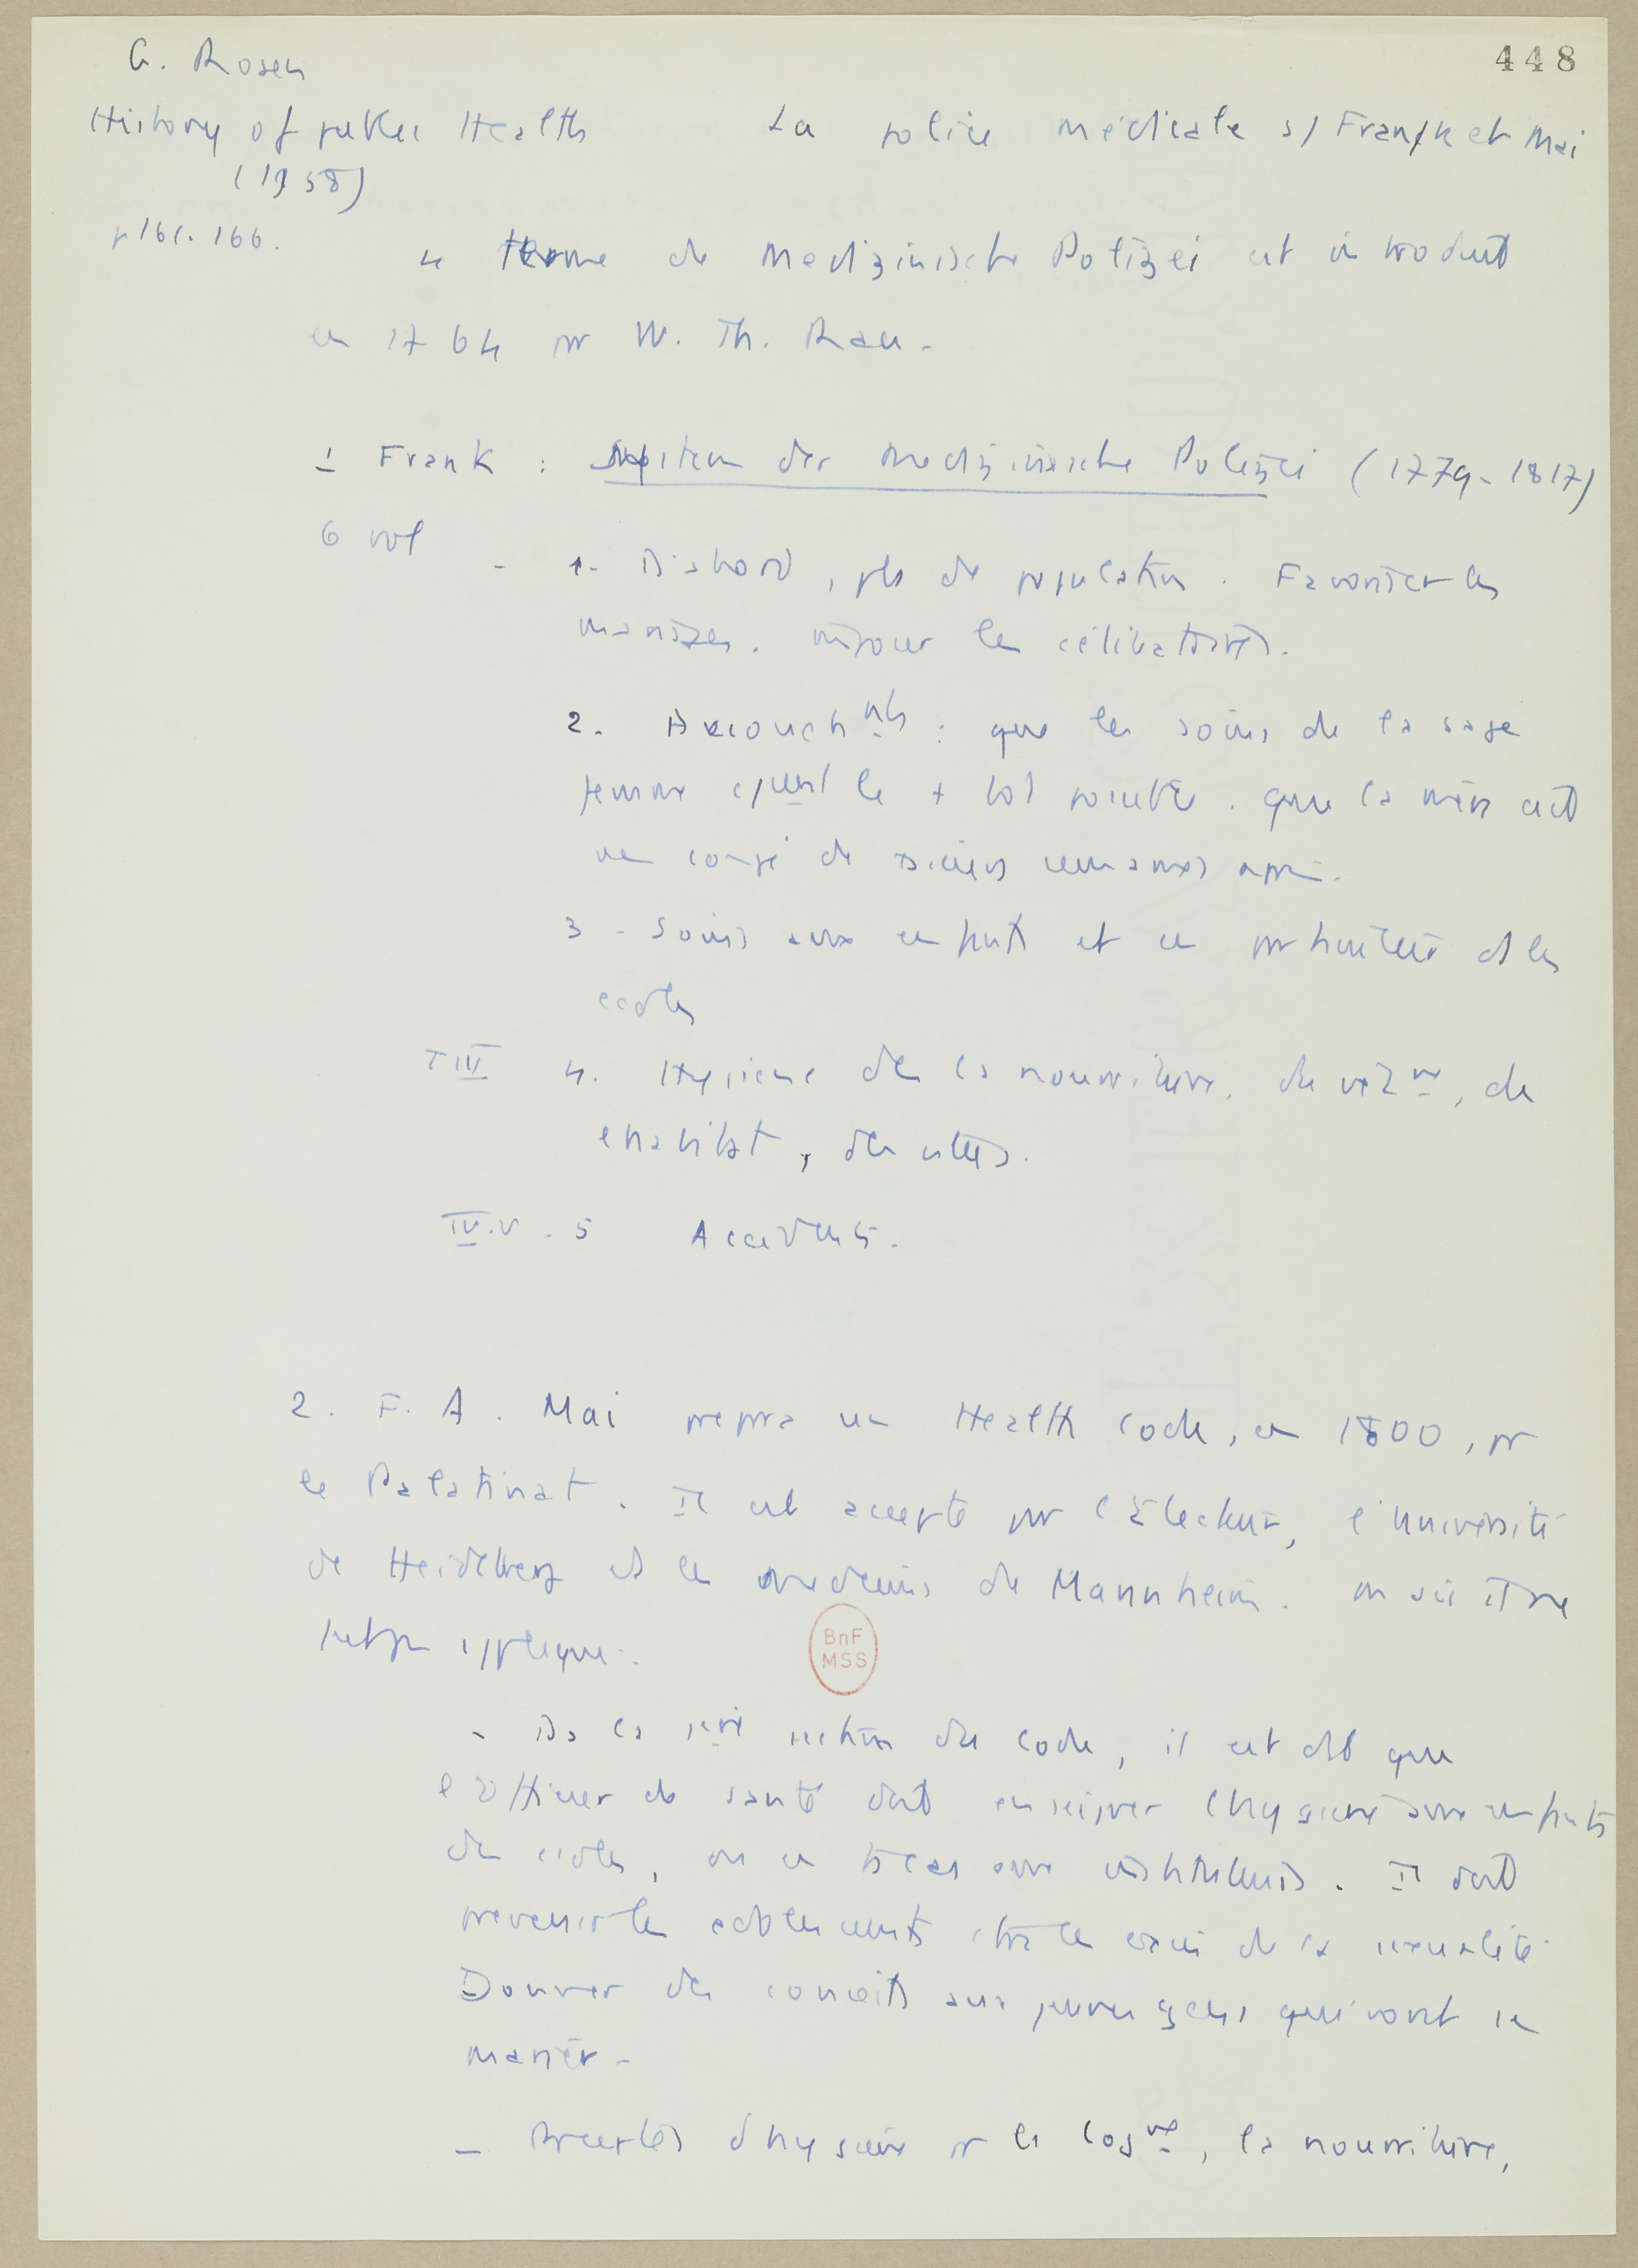 448
G. Rosen
History of public Health
(1958)
p 161. 166.
La police médicale s/ Frank et Mai
Le terme de Medizinische Polizei est introduit
en 1764 par W. Th. Rau.
1 Frank : System der medizinische Polizei (1779-1817)
6 vol
- 1- D'abord, pb de population. Favoriser les
mariages. imposer les célibataires.
2. Accouchnts : que les soins de la sage
femme le + tôt possible. que la mère ait
un congé de semaines après.
3 - Soins aux enfants et en particulier ds les
écoles
T III 4. Hygiène de la nourriture, du vêtnt, de
l'habitat, des villes.
IV.V - 5 Accidents.
2. F. A. Mai prépara un Health Code, en 1800, pr
le Palatinat. Il est accepté par l'Electeur, l'université
de Heidelberg et les médecins de Mannheim. Mais il ne
fut pas appliqué.
- Ds la 1ère section du Code, il est dit que
l'officier de santé doit enseigner l'hygiène aux enfants
des écoles, ou en tt cas aux instituteurs. Il doit
prévenir les adolescents contre les de la sexualité
Donner des conseils aux jeunes gens qui vont se
marier -
- Preceptes d'hygiène pr le logmt, la nourriture,
BnF
MSS